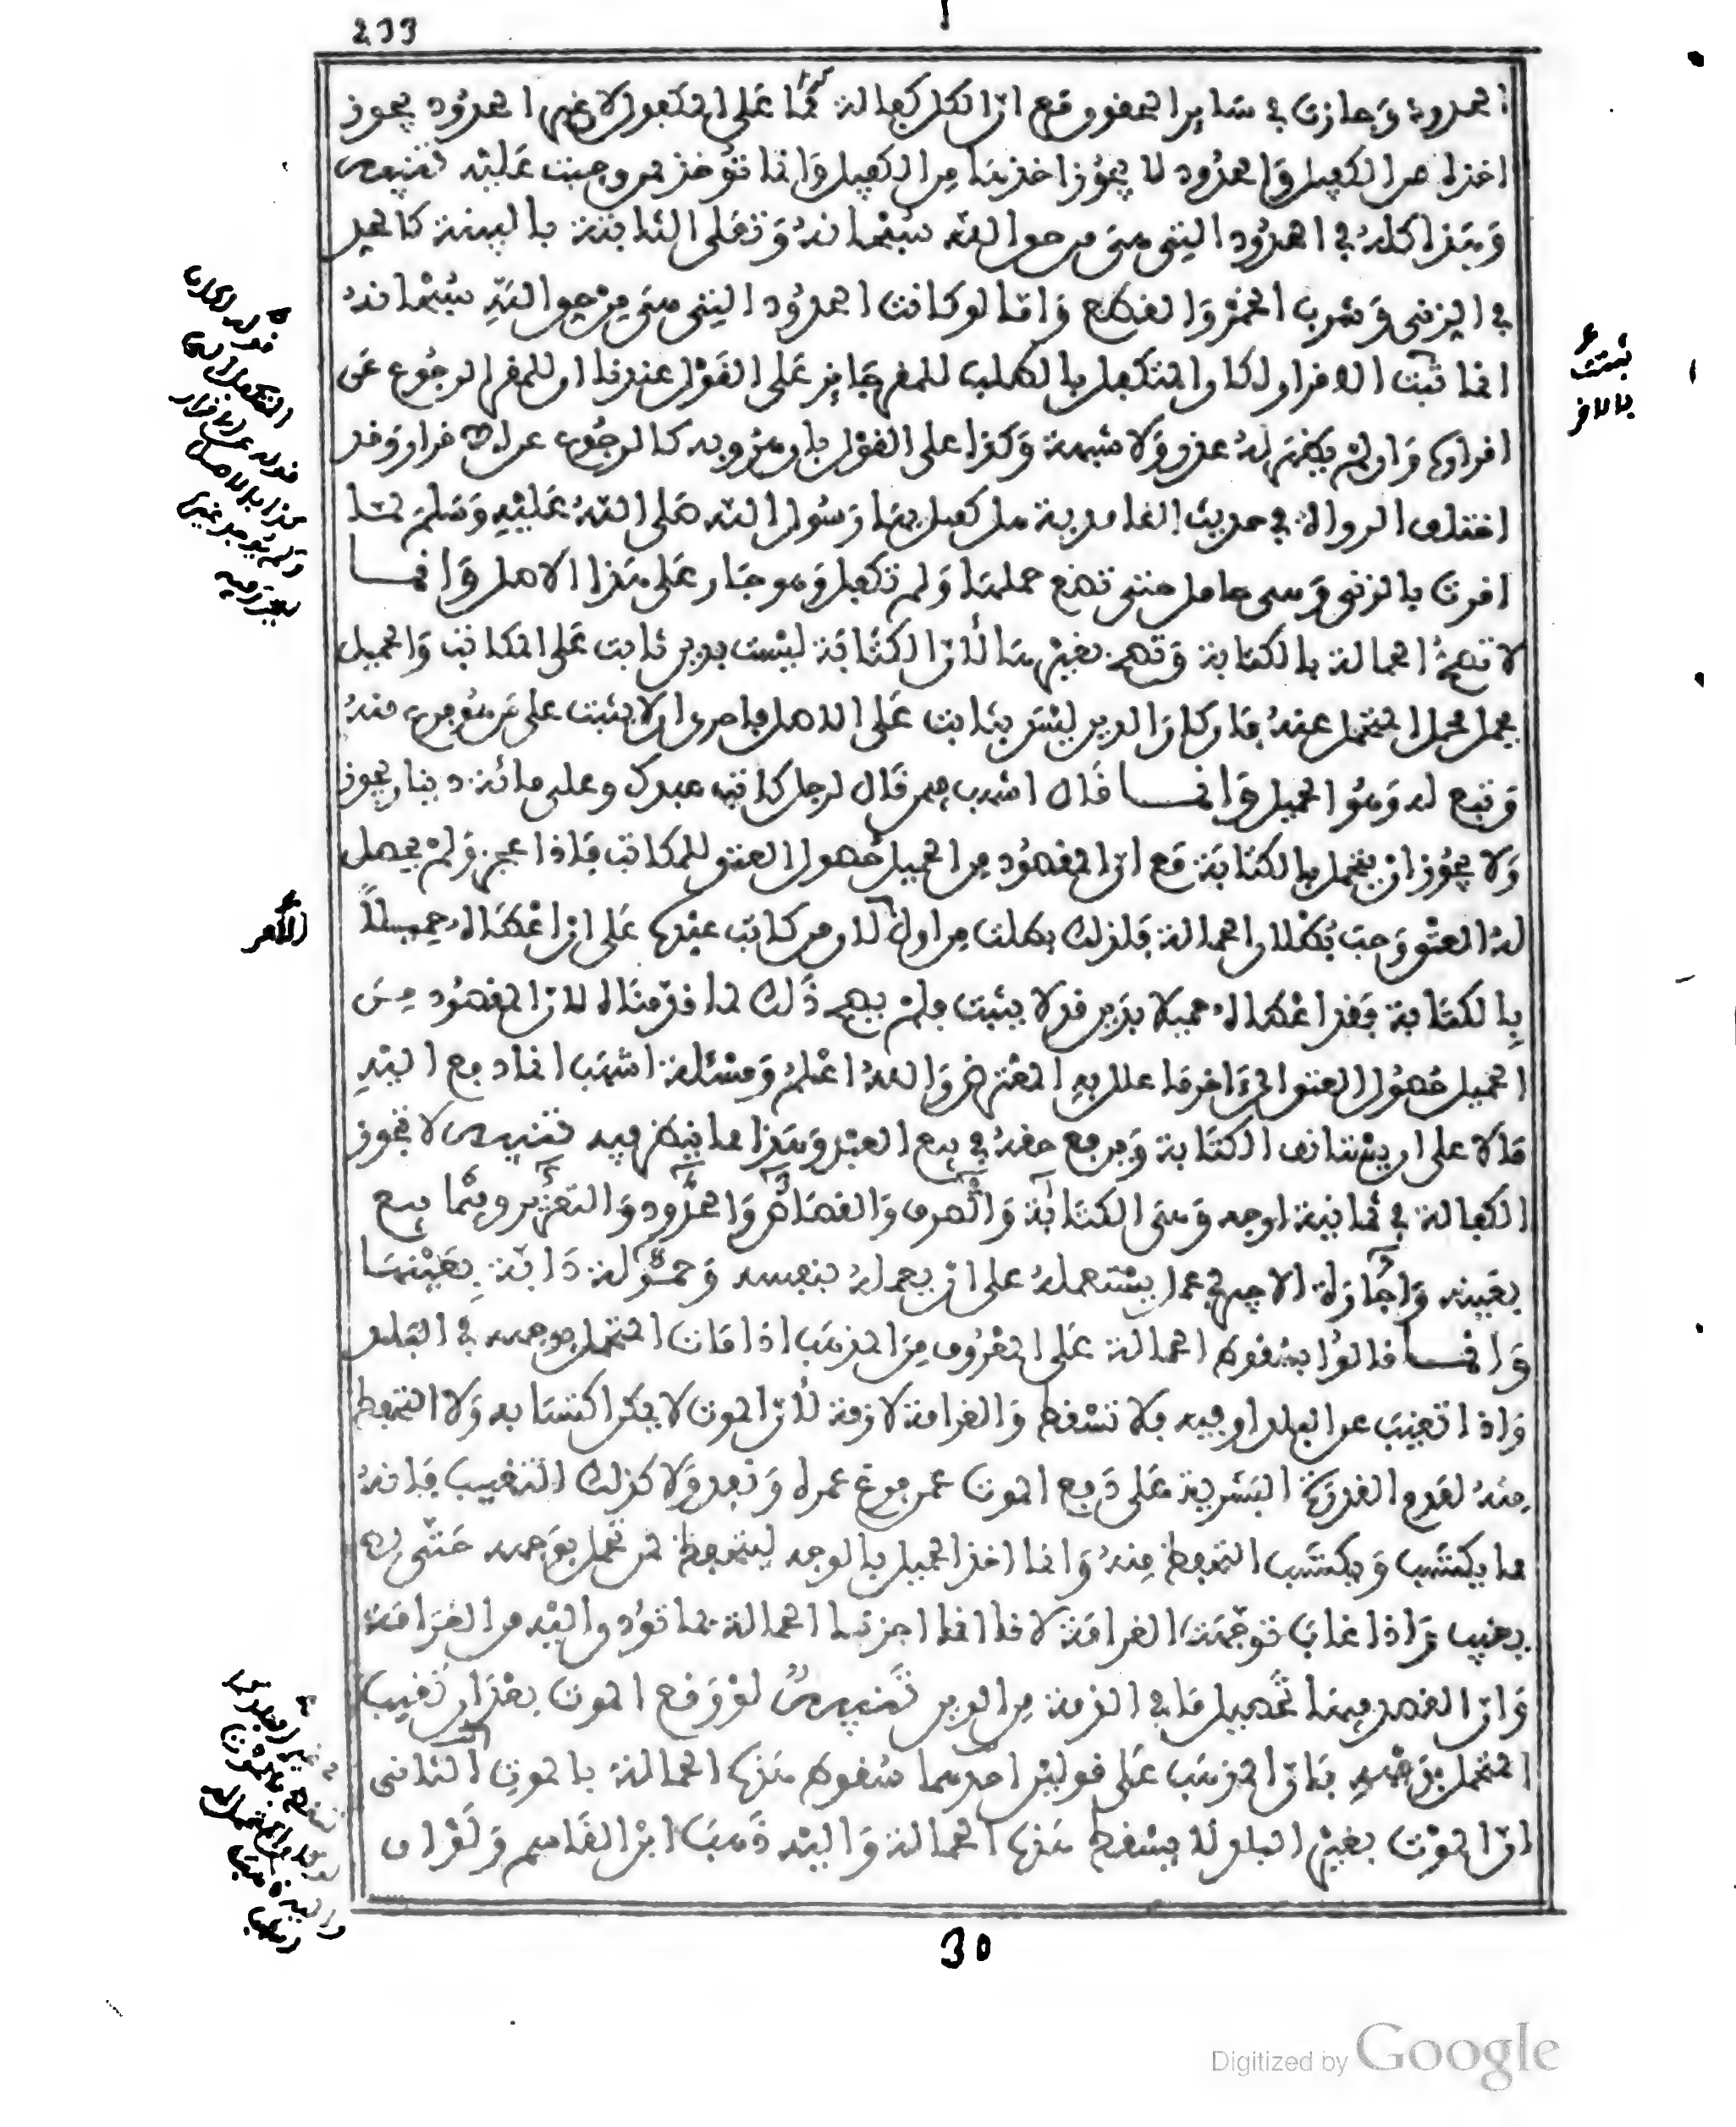 233
الحدود وجازت في ساير الحقوق مع ان الكل كفالة بما على المكفول لان غير الحدود يجوز
اخذه من الكفيل والحدود لا يجوز اخذها من الكفيل وانما تؤخذ ممن وجبت عليه تنبيه
وهذا كله في الحدود التي هي من حق الله سبحانه وتعلى الثابتة بالبينة كالحد
في الزنى وشرب الخمر والقطع واما لو كانت الحدود التي هي من حق الله سبحانه
انما ثبت الاقرار لكان التكفل بالطلب للمقر جايز على القول عندنا ان للمقر الرجوع عن
اقراره وان لم يظهر له عذر ولا شبهة وكذا على القول بان هروبه كالرجوع عن الاقرار وقد
اختلف الرواة في حديث الغامدية هل كفل بها رسول الله صلى الله عليه وسلم لما
اقرت بالزنى وهي حامل حتى تضع حملها ولم تكفل وهو جار على هذا الاصل وانما
لا تصح الحمالة بالكتابة وتصح بغيرها لان الكتابة ليست بدين ثابت على المكاتب والحميل
يحل محل المتحمل عنه فان كان الدين ليس بثابت على الاصل فاحرى ان لا يثبت على من هو فرع منه
وتبع له وهو الحميل وانما قال اشهب فيمن قال لرجل كاتب عبدك وعلي مائة دينار يجوز
ولا يجوز ان يتحمل بالكتابة مع ان المقصود من الحميل حصول العتق للمكاتب فاذا عجز ولم يحصل
له العتق وجب بطلان الحمالة فلذلك بطلت من اول الامر لان من كاتب عبده على ان اعطاه حميلا
بالكتابة فقد اعطاه حميلا بدين قد لا يثبت فلم يصح ذلك لما قدمناه لان المقصود من
الحميل حصول العتق الى ءاخر ما علل به المعترض والله اعلم ومسئلة اشهب انما دفع اليه
مالا على ان يستانف الكتابة ويرجع حقه في بيع العبد وهذا مما ينظر فيه تنبيه لا تجوز
الكفالة في ثمانية اوجه وهي الكتابة والصرف والقصاص والحدود والتعزير وفيما بيع
بعينه واجازة الاجير في عمل يستعمله على ان يعمله بنفسه وحمولة دابة بعينها
وانما قالوا بسقوط الحمالة على المعروف من المذهب اذا مات المتحمل بوجهه في البلد
واذا تغيب عن البلد او فيه فلا تسقط والغرامة لازمة لان الموت لا يمكن اكتسابه ولا التحفظ
منه لعدم القدرة البشرية على دفع الموت عمن فرغ عمره ونفد ولا كذلك التغيب فانه
مما يكتسب ويكتسب التحفظ منه وانما اخذ الحميل بالوجه ليتحفظ ممن تحمل بوجهه حتى لا
يغيب واذا غاب توجهت الغرامة لانا انما اجزنا الحمالة بما تؤدي اليه من الغرامة
وان القصد فيها تحصيل ما في الذمة من الدين تنبيه لو وقع الموت بعد ان تغيب
المتحمل بوجهه فان المذهب على قولين احدهما سقوط هذه الحمالة بالموت الثاني
ان الموت بغير البلد لا يسقط هذه الحمالة واليه ذهب ابن القاسم ولو ان
ثبتت
بالاقر
الامر
30
Digitized by Google